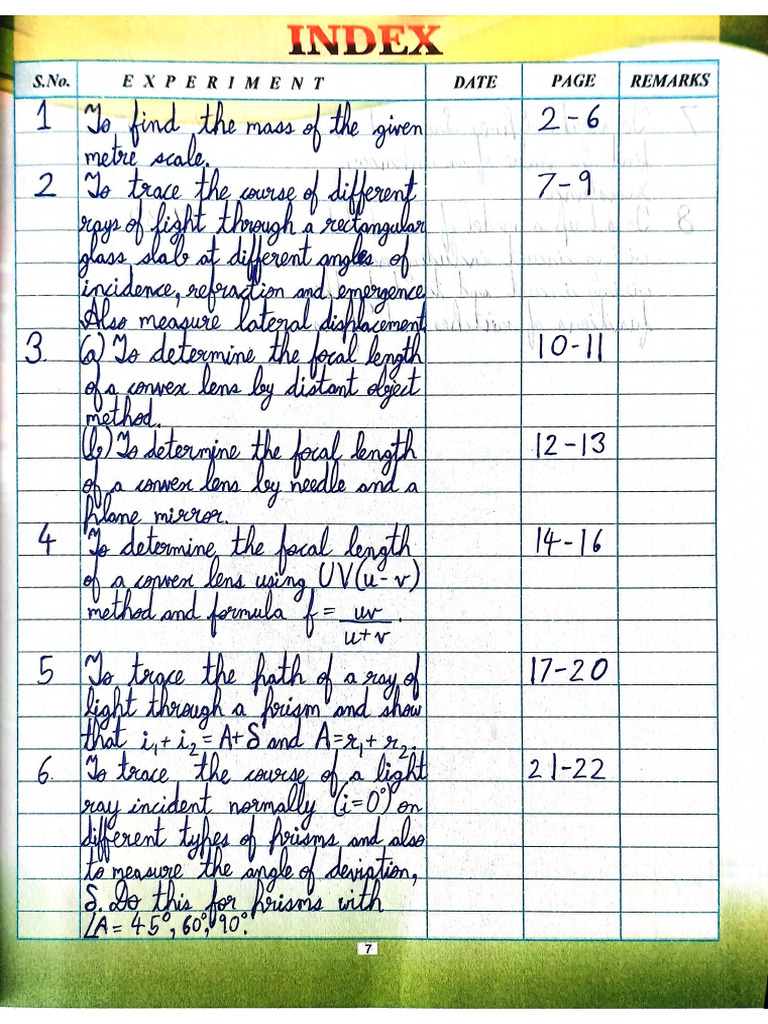 INDEX
S.No. EXPERIMENT DATE PAGE REMARKS
1 To find the mass of the given 2-6
metre scale.
2 To trace the course of different 7-9
rays of light through a rectangular
glass slab at different angles of
incidence, refraction and emergence
Also measure lateral displacement
3. (a) To determine the focal length 10-11
of a convex lens by distant object
method.
(b) To determine the focal length 12-13
of a convex lens by needle and a
plane mirror.
4 To determine the focal length 14-16
of a convex lens using UV(u-v)
method and formula f = uv
u+v .
5 To trace the path of a ray of 17-20
light through a prism and show
that i₁+i₂=A+δ and A=r₁+r₂.
6. To trace the course of a light 21-22
ray incident normally (i=0°) on
different types of prisms and also
to measure the angle of deviation,
δ. Do this for prisms with
∠A= 45°, 60°, 90°.
7